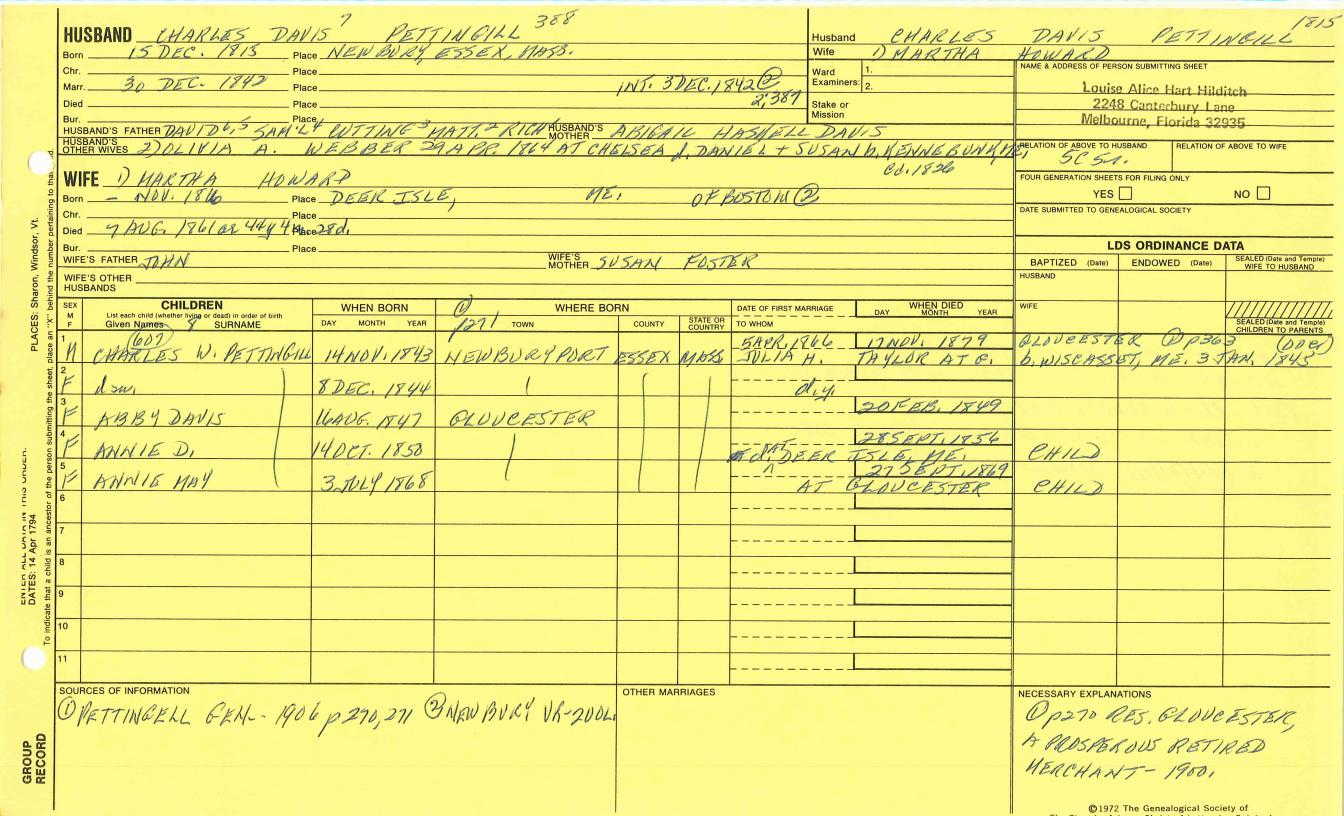 HUSBAND CHARLES DAVIS 7 PETTINGILL 388
Born 15 DEC. 1815 Place NEWBURY, ESSEX, MASS.
Chr. Place
Marr. 30 DEC. 1842 Place INT. 3 DEC. 1842 ② 2;387
Died Place
Bur. Place
HUSBAND'S FATHER DAVID 6,5 SAM'L 4 CUTTING 3 MATT. 2 RICH 1 HUSBAND'S MOTHER ABIGAIL HASKELL DAVIS
HUSBAND'S OTHER WIVES 2) OLIVIA A. WEBBER 29 APR. 1864 AT CHELSEA d. DANIEL + SUSAN b. KENNEBUNK, ME.
cd. 1826
WIFE 1) MARTHA HOWARD
Born - NOV. 1816 Place DEER ISLE, ME. OF BOSTON ②
Chr. Place
Died 7 AUG. 1861 or 44y 4m 28d. Place
Bur. Place
WIFE'S FATHER JOHN WIFE'S MOTHER SUSAN FOSTER
WIFE'S OTHER HUSBANDS
1815
Husband CHARLES DAVIS PETTINGILL
Wife 1) MARTHA HOWARD
Ward Examiners: 1. 2.
Stake or Mission
NAME & ADDRESS OF PERSON SUBMITTING SHEET
Louise Alice Hart Hilditch
2248 Canterbury Lane
Melbourne, Florida 32935
RELATION OF ABOVE TO HUSBAND RELATION OF ABOVE TO WIFE
FOUR GENERATION SHEETS FOR FILING ONLY
YES NO
DATE SUBMITTED TO GENEALOGICAL SOCIETY
LDS ORDINANCE DATA
BAPTIZED (Date) ENDOWED (Date) SEALED (Date and Temple) WIFE TO HUSBAND
HUSBAND
WIFE
SEALED (Date and Temple) CHILDREN TO PARENTS
SEX M F
CHILDREN
List each child (whether living or dead) in order of birth
Given Names 8 SURNAME
WHEN BORN
DAY MONTH YEAR
① p271
WHERE BORN
TOWN COUNTY STATE OR COUNTRY
DATE OF FIRST MARRIAGE
TO WHOM
WHEN DIED
DAY MONTH YEAR
(607)
5 APR. 1866 17 NOV. 1879 GLOUCESTER ① p363
1 M CHARLES W. PETTINGILL 14 NOV. 1843 NEWBURYPORT ESSEX MASS JULIA H. TAYLOR AT G. b. WISCASSET, ME. 3 JAN. 1845
2 F daw. 8 DEC. 1844 d.y.
20 FEB. 1849
3 F ABBY DAVIS 16 AUG. 1847 GLOUCESTER
28 SEPT. 1856
4 F ANNIE D. 14 OCT. 1850 d. AT DEER ISLE, ME. CHILD
27 SEPT. 1869
5 F ANNIE MAY 3 JULY 1868 AT GLOUCESTER CHILD
6
7
8
9
10
11
SOURCES OF INFORMATION
① PETTINGELL GEN-- 1906 p 270, 271 ② NEWBURY VR-2 VOL.
OTHER MARRIAGES
NECESSARY EXPLANATIONS
① p270 RES. GLOUCESTER,
A PROSPEROUS RETIRED
MERCHANT - 1900.
©1972 The Genealogical Society of
PLACES: Sharon, Windsor, Vt.
ENTER ALL DATA IN THIS ORDER:
DATES: 14 Apr 1794
To indicate that a child is an ancestor of the person submitting the sheet, place an "X" behind the number pertaining to that
GROUP RECORD